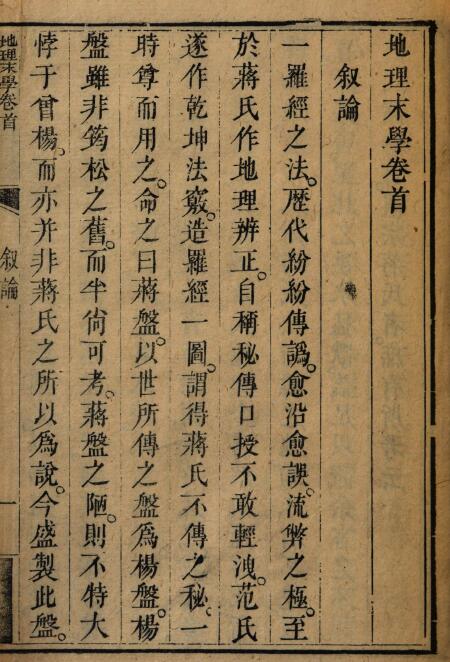 地理末學卷首
叙論
一羅經之法。歷代紛紛傳譌。愈沿愈誤。流弊之極。至
於蔣氏作地理辨正。自稱秘傳口授不敢輕洩。范氏
遂作乾坤法竅。造羅經一圖。謂得蔣氏不傳之秘。一
時尊而用之。命之曰蔣盤。以世所傳之盤爲楊盤。楊
盤雖非筠松之舊。而半尙可考。蔣盤之陋。則不特大
悖于曾楊。而亦并非蔣氏之所以爲說。今盛製此盤。
地理末學卷首
叙論
一